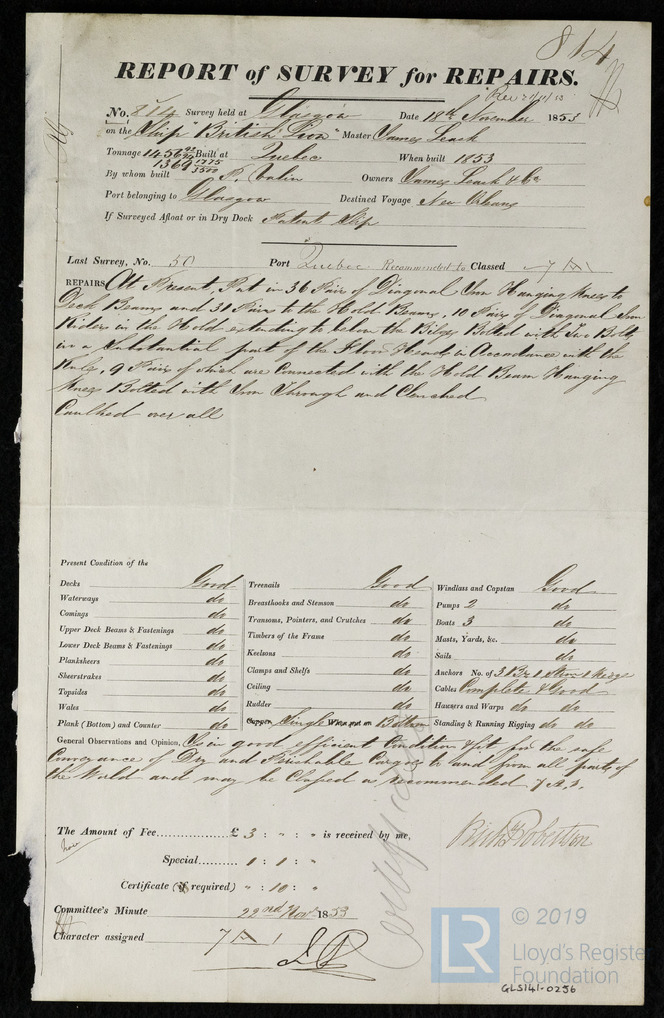 814
REPORT of SURVEY for REPAIRS.
No. 814 Survey held at Glasgow Date 18th November 1853
on the Ship "British Lion" Master James Leach
Tonnage 1456 Built at Quebec When built 1853
1369
By whom built P. Valin Owners James Leach & Co
Port belonging to Glasgow Destined Voyage New Orleans
If Surveyed Afloat or in Dry Dock Patent Slip
Last Survey, No. 50 Port Quebec Recommended to Classed 7 A 1
REPAIRS At Present, Put in 36 Pairs of Diagonal Iron Hanging Knees to
Deck Beams and 31 Pairs to the Hold Beams, 10 Pairs of Diagonal Iron
Riders in the Hold extending to below the Bilges Bolted with Two Bolts
in a Substantial part of the Floor Heads in Accordance with the
Rule, 9 Pairs of which are Connected with the Hold Beam Hanging
Knees Bolted with Iron Through and Clenched
Caulked over all
Present Condition of the
Decks Good
Waterways do
Comings do
Upper Deck Beams & Fastenings do
Lower Deck Beams & Fastenings do
Planksheers do
Sheerstrakes do
Topsides do
Wales do
Plank (Bottom) and Counter do
Treenails Good
Breasthooks and Stemson do
Transoms, Pointers, and Crutches do
Timbers of the Frame do
Keelsons do
Clamps and Shelfs do
Ceiling do
Rudder do
Copper Single When put on Bottom
Windlass and Capstan Good
Pumps 2 do
Boats 3 do
Masts, Yards, &c. do
Sails do
Anchors No. of 3 Br 1 Stm 1 Kedge
Cables Complete & Good
Hawsers and Warps do do
Standing & Running Rigging do do
General Observations and Opinion, Is in good efficient Condition & fit for the safe
Conveyance of Dry and Perishable Cargoes to and from all parts of
the World and may be Classed as recommended 7 A.1.
The Amount of Fee............... £ 3 : " : " is received by me,
Special.......... 1 : 1 : "
Certificate (if required) " : 10 : "
Committee's Minute 22nd Novr 1853
Character assigned 7 A 1
© 2019
LR
Lloyd's Register
Foundation
GLS141-0256